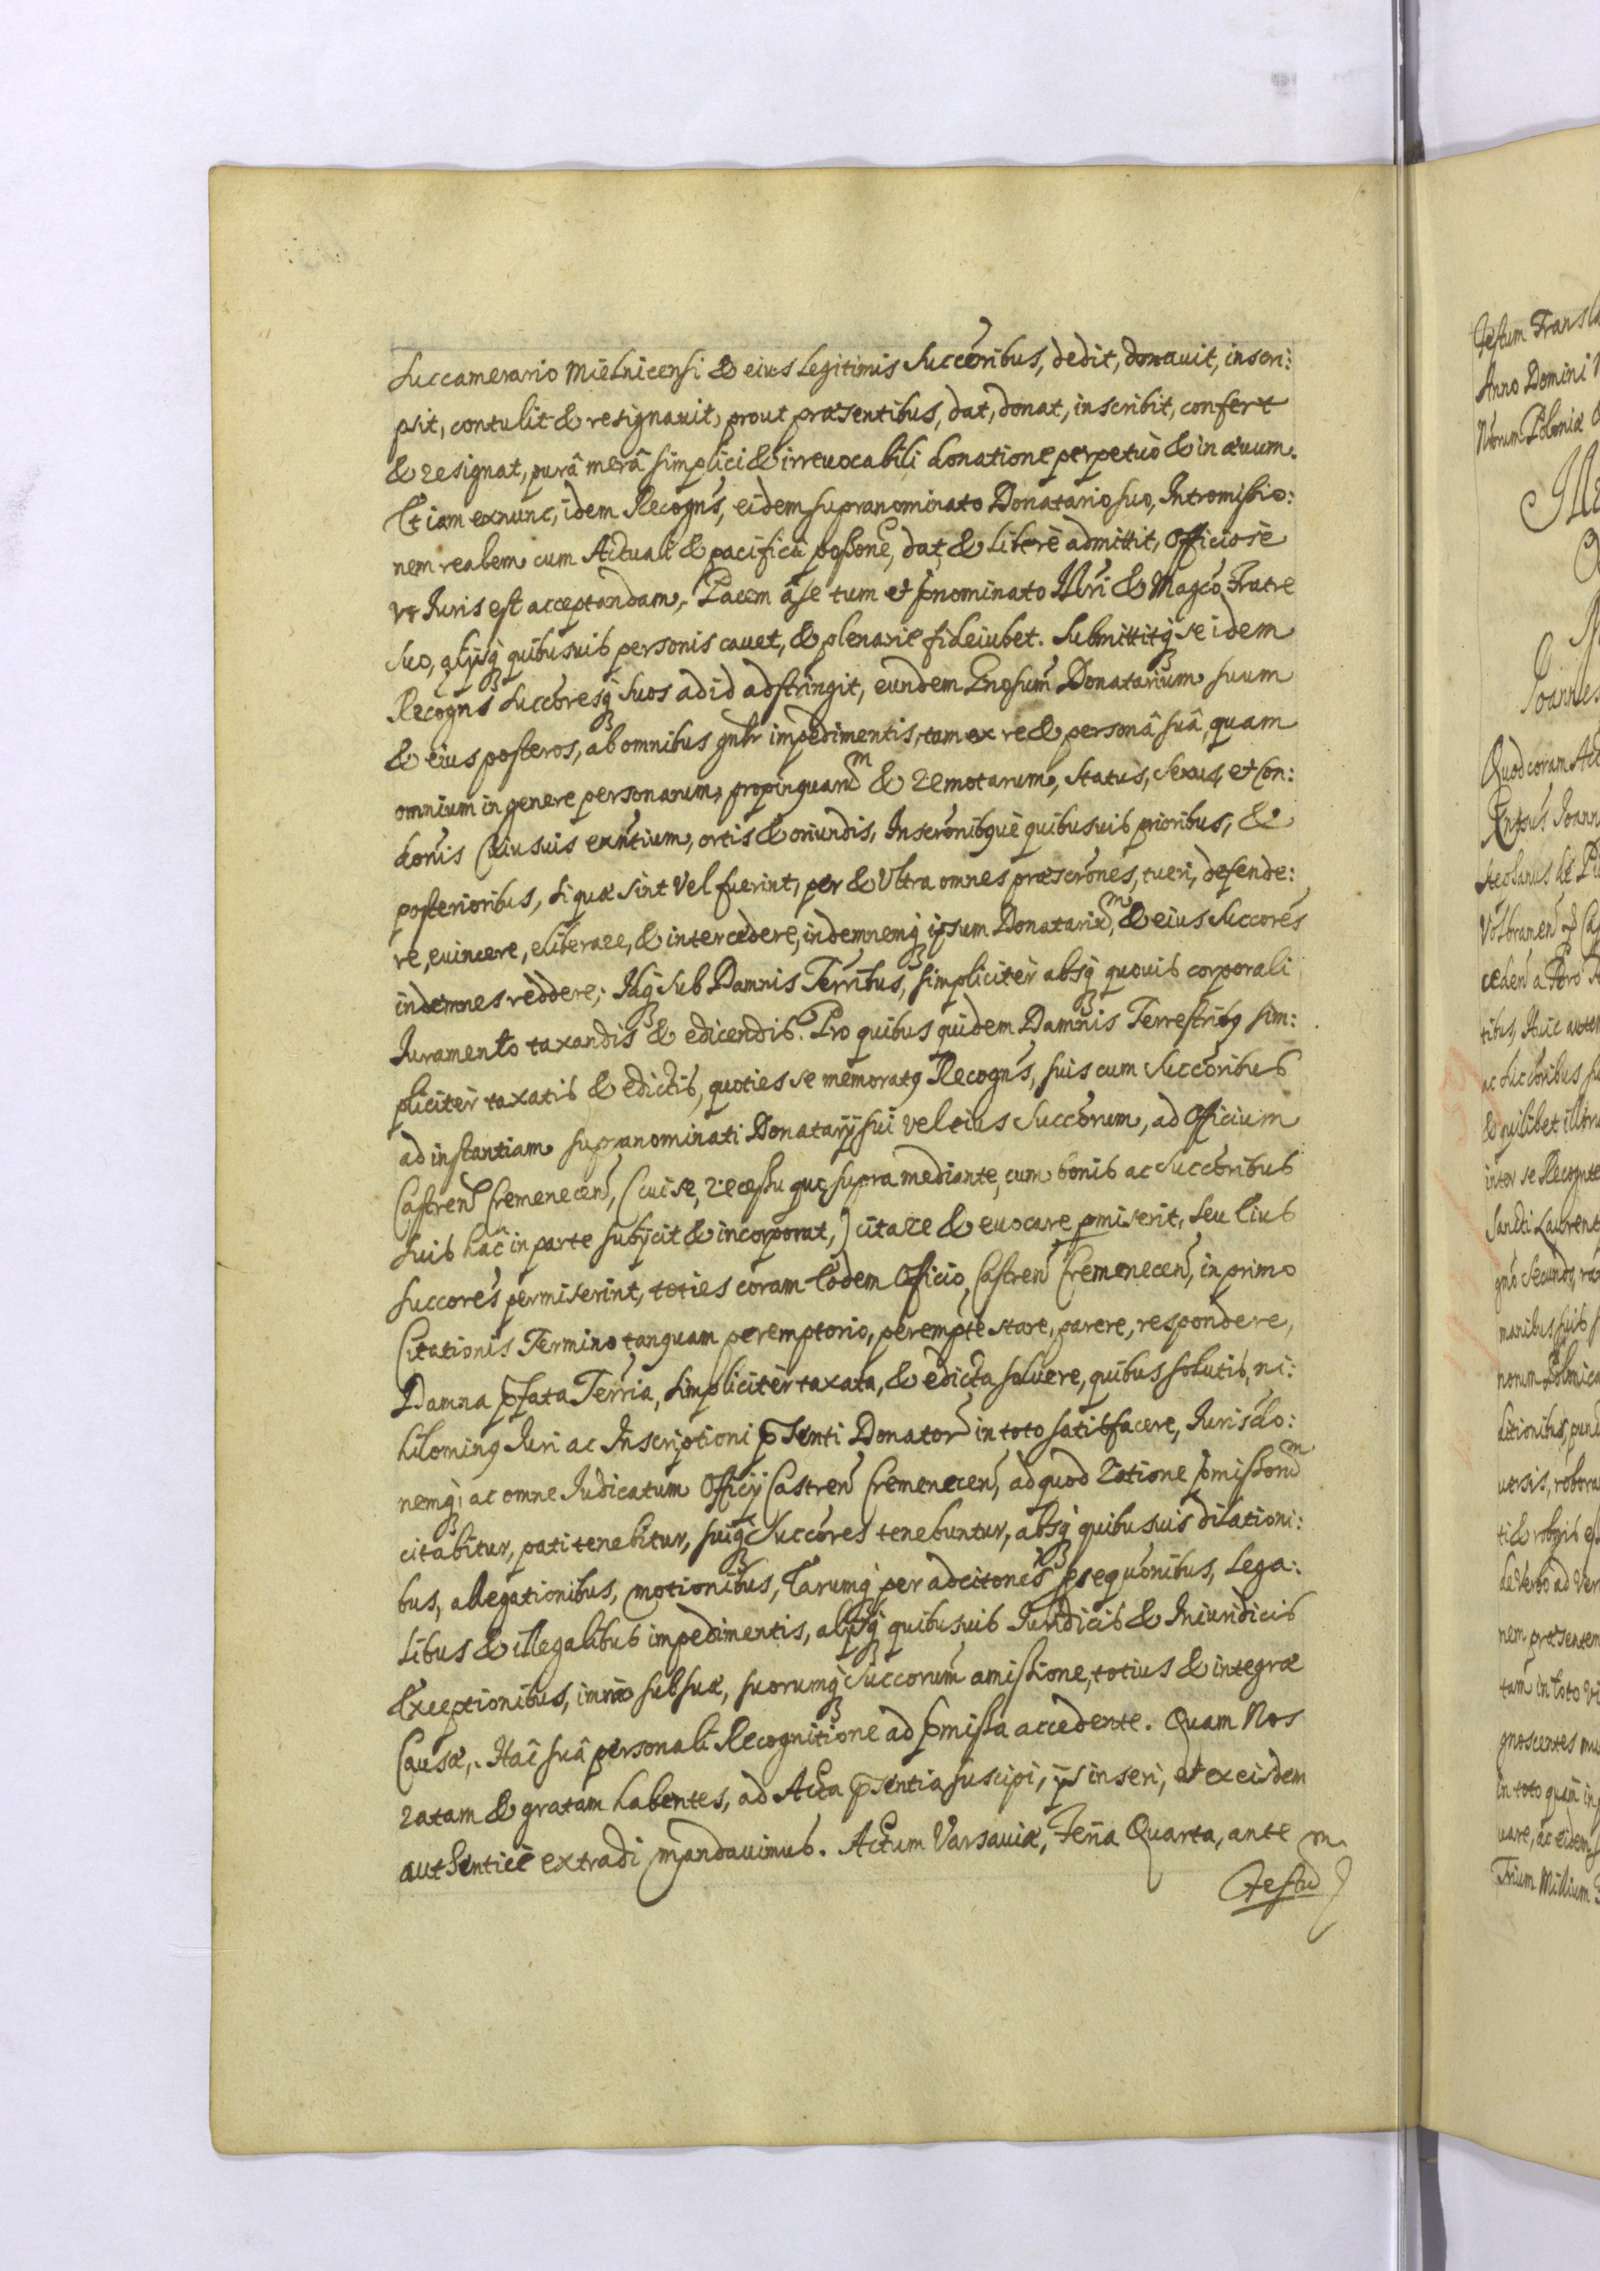 Succamerario Mielnicensi & eius Legitimis Succoribus, dedit, donauit, inscri:
psit, contulit & resignauit, prout præsentibus, dat, donat, inscribit, confert
& resignat, purâ merâ simplici & irreuocabili donatione perpetuò & in æuum.
Et iam exnunc, idem Recogns, eidem supranominato Donatario suo, Intromissio:
nem realem cum Actuali & pacifica possone, dat & liberè admittit, Officiosè
vt Iuris est acceptandam. Pacem à se tum et pnominato Illri & Magco Fratre
suo, alijsq quibusuis personis cauet, & plenariè fideiubet. Submittitq se idem
Recogns Succoresq suos ad id adstringit, eundem Gnosum Donatarium suum
& eius posteros, ab omnibus gnlr impedimentis, tam ex re & personâ suâ, quam
omnium in genere personarum, propinquarum & remotarum, status, sexus, et Con:
donis Cuiusuis exntium, ortis & oriundis, Inscronibque quibusuis prioribus, &
posterioribus, si quæ sint vel fuerint, per & Vltra omnes præscrones, tueri, defende:
re, euincere, eliberare, & intercedere, indemnemq ipsum Donatarium, & eius Succores
indemnes reddere; Idq sub Damnis Terribus, simpliciter absq quouis corporali
Iuramento taxandis & edicendis. Pro quibus quidem Damnis Terrestribq sim:
pliciter taxatis & edictis, quoties se memoratq Recogns, suis cum Succoribus
ad instantiam supranominati Donatarij sui vel eius Succorum, ad Officium
Castren Cremenecen, (cui se, recessu quo supra mediante, cum bonis ac Succoribus
suis hac in parte subijcit & incorporat,) citare & euocare pmiserit, seu Eius
succores permiserint, toties coram Eodem Officio, Castren Cremenecen, in primo
Citationis Termino tanquam peremptorio, perempte stare, parere, respondere,
Damna pfata Terria, simpliciter taxata, & edicta soluere, quibus solutis, ni:
hilominq Iuri ac Inscriptioni psenti Donator in toto satisfacere, Iurisdo:
nemq, ac omne Iudicatum Officij Castren Cremenecen, ad quod ratione pmissorum
citabitur, pati tenebitur, suiq Succores tenebuntur, absq quibusuis dilationi:
bus, allegationibus, motionibus, Earumq per adcitones psequonibus, Lega:
libus & illegalibus impedimentis, alijsq quibusuis Iuridicis & Iniuridicis
Exceptionibus, immo sub suæ, suorumq Succorum amissione, totius & integræ
Causæ. Hac suâ personali Recognitione ad pmissa accedente. Quam Nos
ratam & gratam habentes, ad Acta psentia suscipi, ijs inseri, et ex eisdem
authenticè extradi mandauimus. Actum Varsauiæ, Feria Quarta, ante
Festum
Festum
Anno Domini
Poloniæ
Quod coram
tibus, Huic autem
ac Succoribus
& quilibet
inter se
Sancti Laurent
manibus suis
de Verbo ad Ver
nem præsentem
tam in toto
in toto quam in
uare, ac eidem
Trium Millium